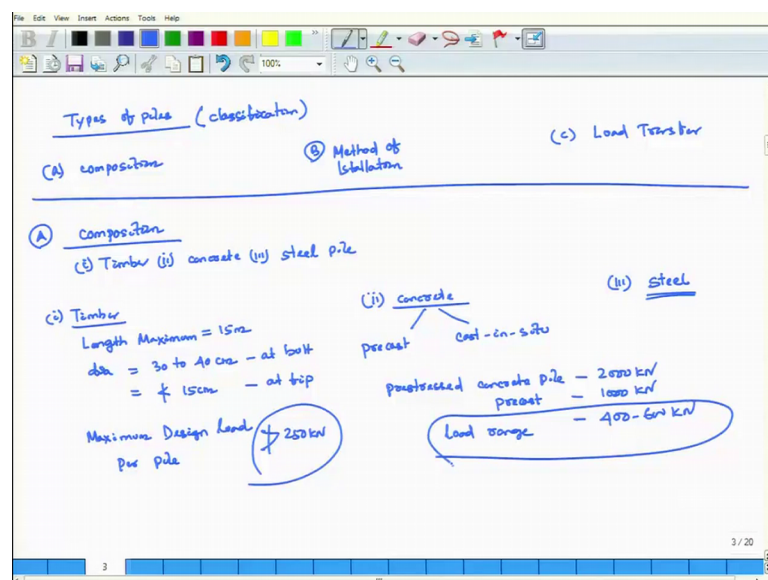 File Edit View Insert Actions Tools Help
100%
Types of piles (classification)
(a) composition
(B) Method of
Istallation
(c) Load Transfer
(A) composition
(i) Timber (ii) concrete (iii) steel pile
(i) Timber
Length Maximum = 15m
dia = 30 to 40 cm - at butt
= ≮ 15cm - at tip
Maximum Design Load ≯ 250 KN
Per pile
(ii) concrete
precast cast-in-situ
prestressed concrete pile - 2000 KN
precast - 1000 KN
Load range - 400-600 KN
(iii) steel
3 / 20
3